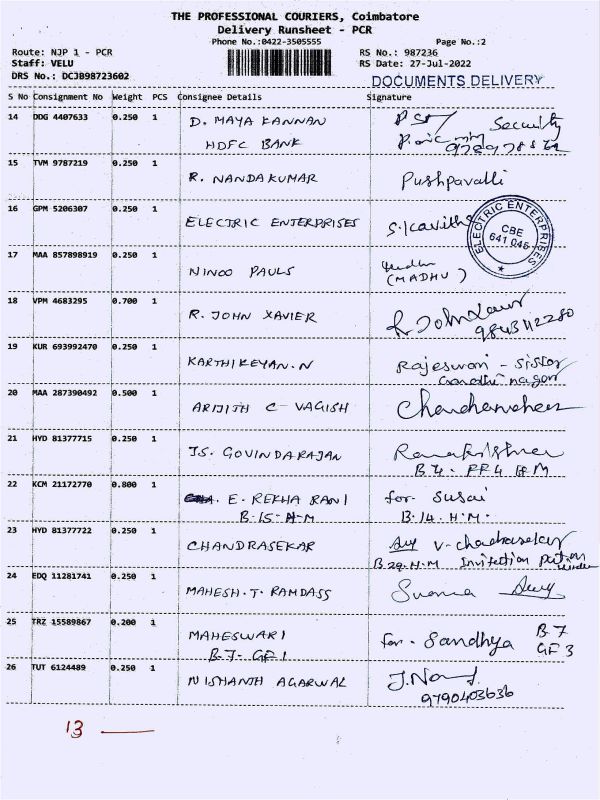 THE PROFESSIONAL COURIERS, Coimbatore
Delivery Runsheet - PCR
Phone No.:0422-3505555 Page No.:2
Route: NJP 1 - PCR RS No.: 987236
Staff: VELU RS Date: 27-Jul-2022
DRS No.: DCJB98723602 DOCUMENTS DELIVERY
S No Consignment No Weight PCS Consignee Details Signature
14 DDG 4407633 0.250 1 D. MAYA KANNAN Security
HDFC BANK
15 TVM 9787219 0.250 1 R. NANDAKUMAR Pushpavalli
16 GPM 5206307 0.250 1 ELECTRIC ENTERPRISES S. Kavitha
ELECTRIC ENTERPRISES
CBE
641 045
17 MAA 857898919 0.250 1 NINOO PAULS
(MADHU)
18 VPM 4683295 0.700 1 R. JOHN XAVIER R. John Xavier
9843112280
19 KUR 693992470 0.250 1 KARTHIKEYAN.N Rajeswari - Sister
Gandhi nagar
20 MAA 287390492 0.500 1 ARIJITH C - VAGISH
21 HYD 81377715 0.250 1 T.S. GOVINDARAJAN Ramakrishnan
B4. FF4 H M
22 KCM 21172770 0.800 1 E. REKHA RANI for. Susai
B-15-H-M B.14. H.M.
23 HYD 81377722 0.250 1 CHANDRASEKAR V-Chandrasekar
B 29. H.M Invitation
24 EDQ 11281741 0.250 1 MAHESH.T. RAMDASS
25 TRZ 15589867 0.200 1 MAHESWARI for. Sandhya B7
B-7- GF1 GF3
26 TUT 6124489 0.250 1 NISHANTH AGARWAL
9790403636
13